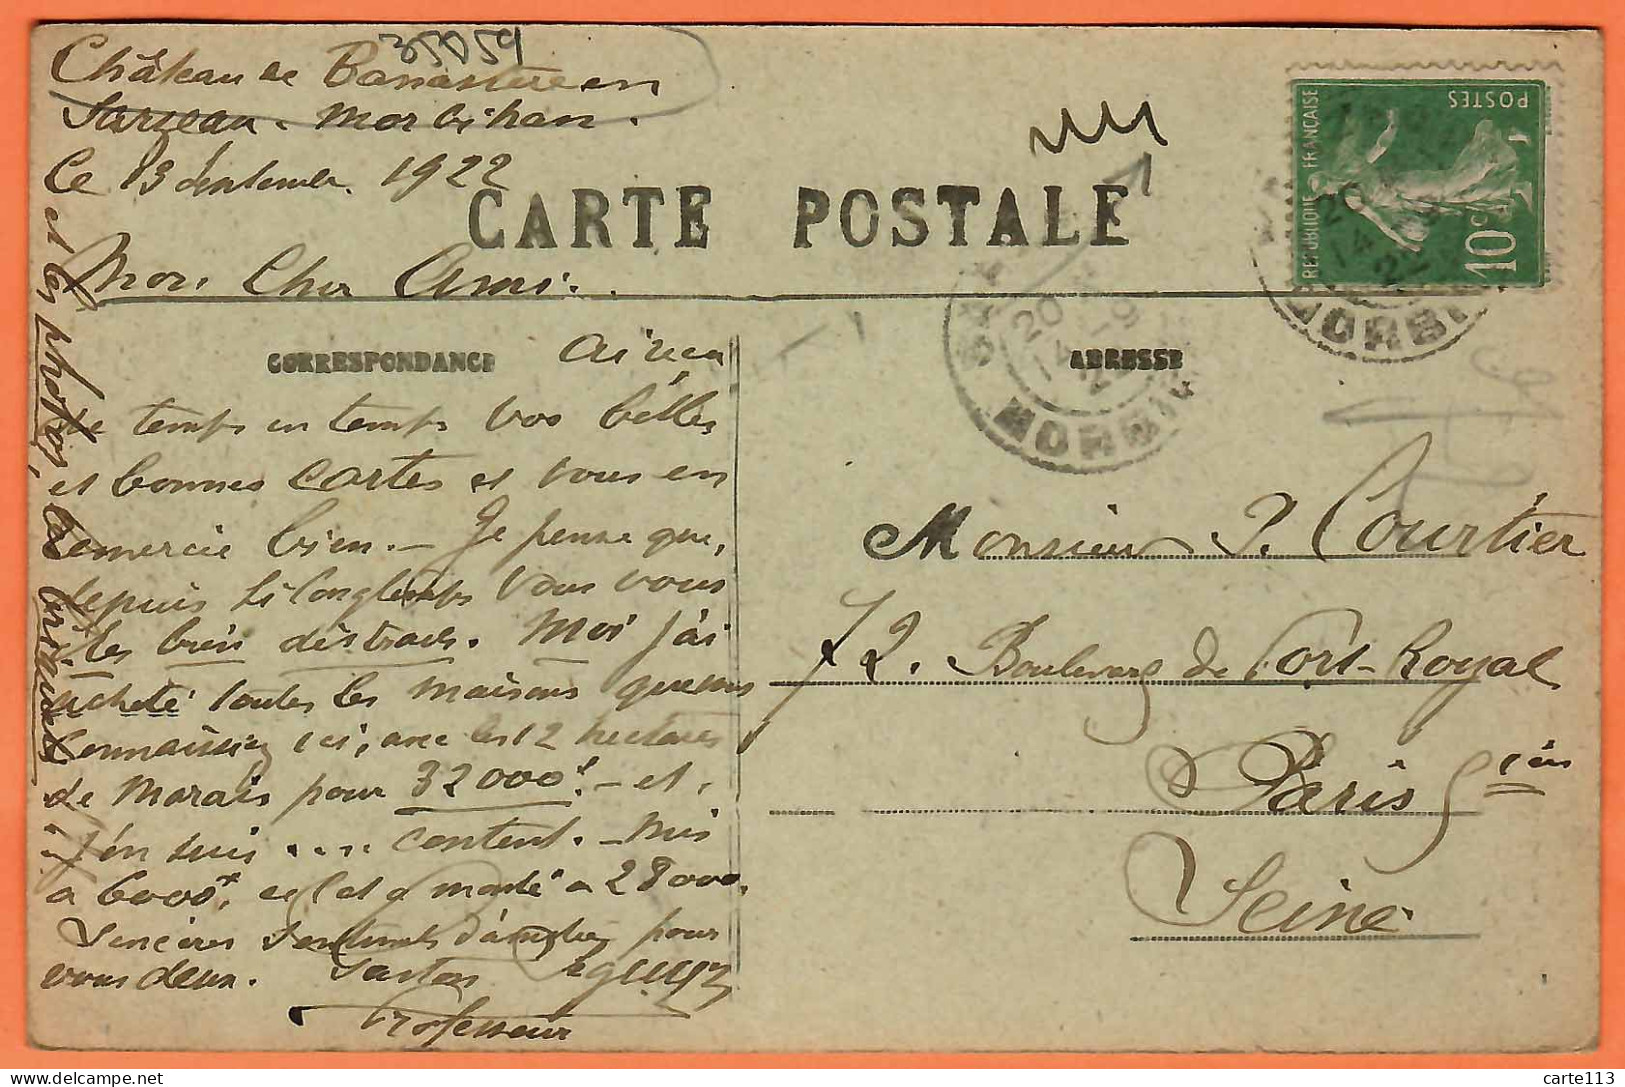 35059
Château de Banastère en
Sarzeau. Morbihan.
Le 13 septembre 1922
CARTE POSTALE
Mon Cher Ami.
CORRESPONDANCE
ADRESSE
de temps en temps vos belles
et bonnes cartes et vous en
remercie bien. — Je pense que,
depuis si longtemps vous vous
êtes bien distraits. Moi j'ai
acheté toutes les maisons que vous
connaissiez ici, avec les 12 hectares
de Marais pour 32000f. — et,
j'en suis .... content. — Mis
a 6000f, et cet a monté a 28000.
Sincères sentiments d'amitiés pour
vous deux. Gaston
Professeur
et les photos, les
REPUBLIQUE FRANCAISE
POSTES
10c
20
14 -9
22
MORBIHAN
20
14
MORBI
Monsieur P. Courtier
72. Boulevard de Port-Royal
Paris 5ième
Seine
carte113
delcampe.net